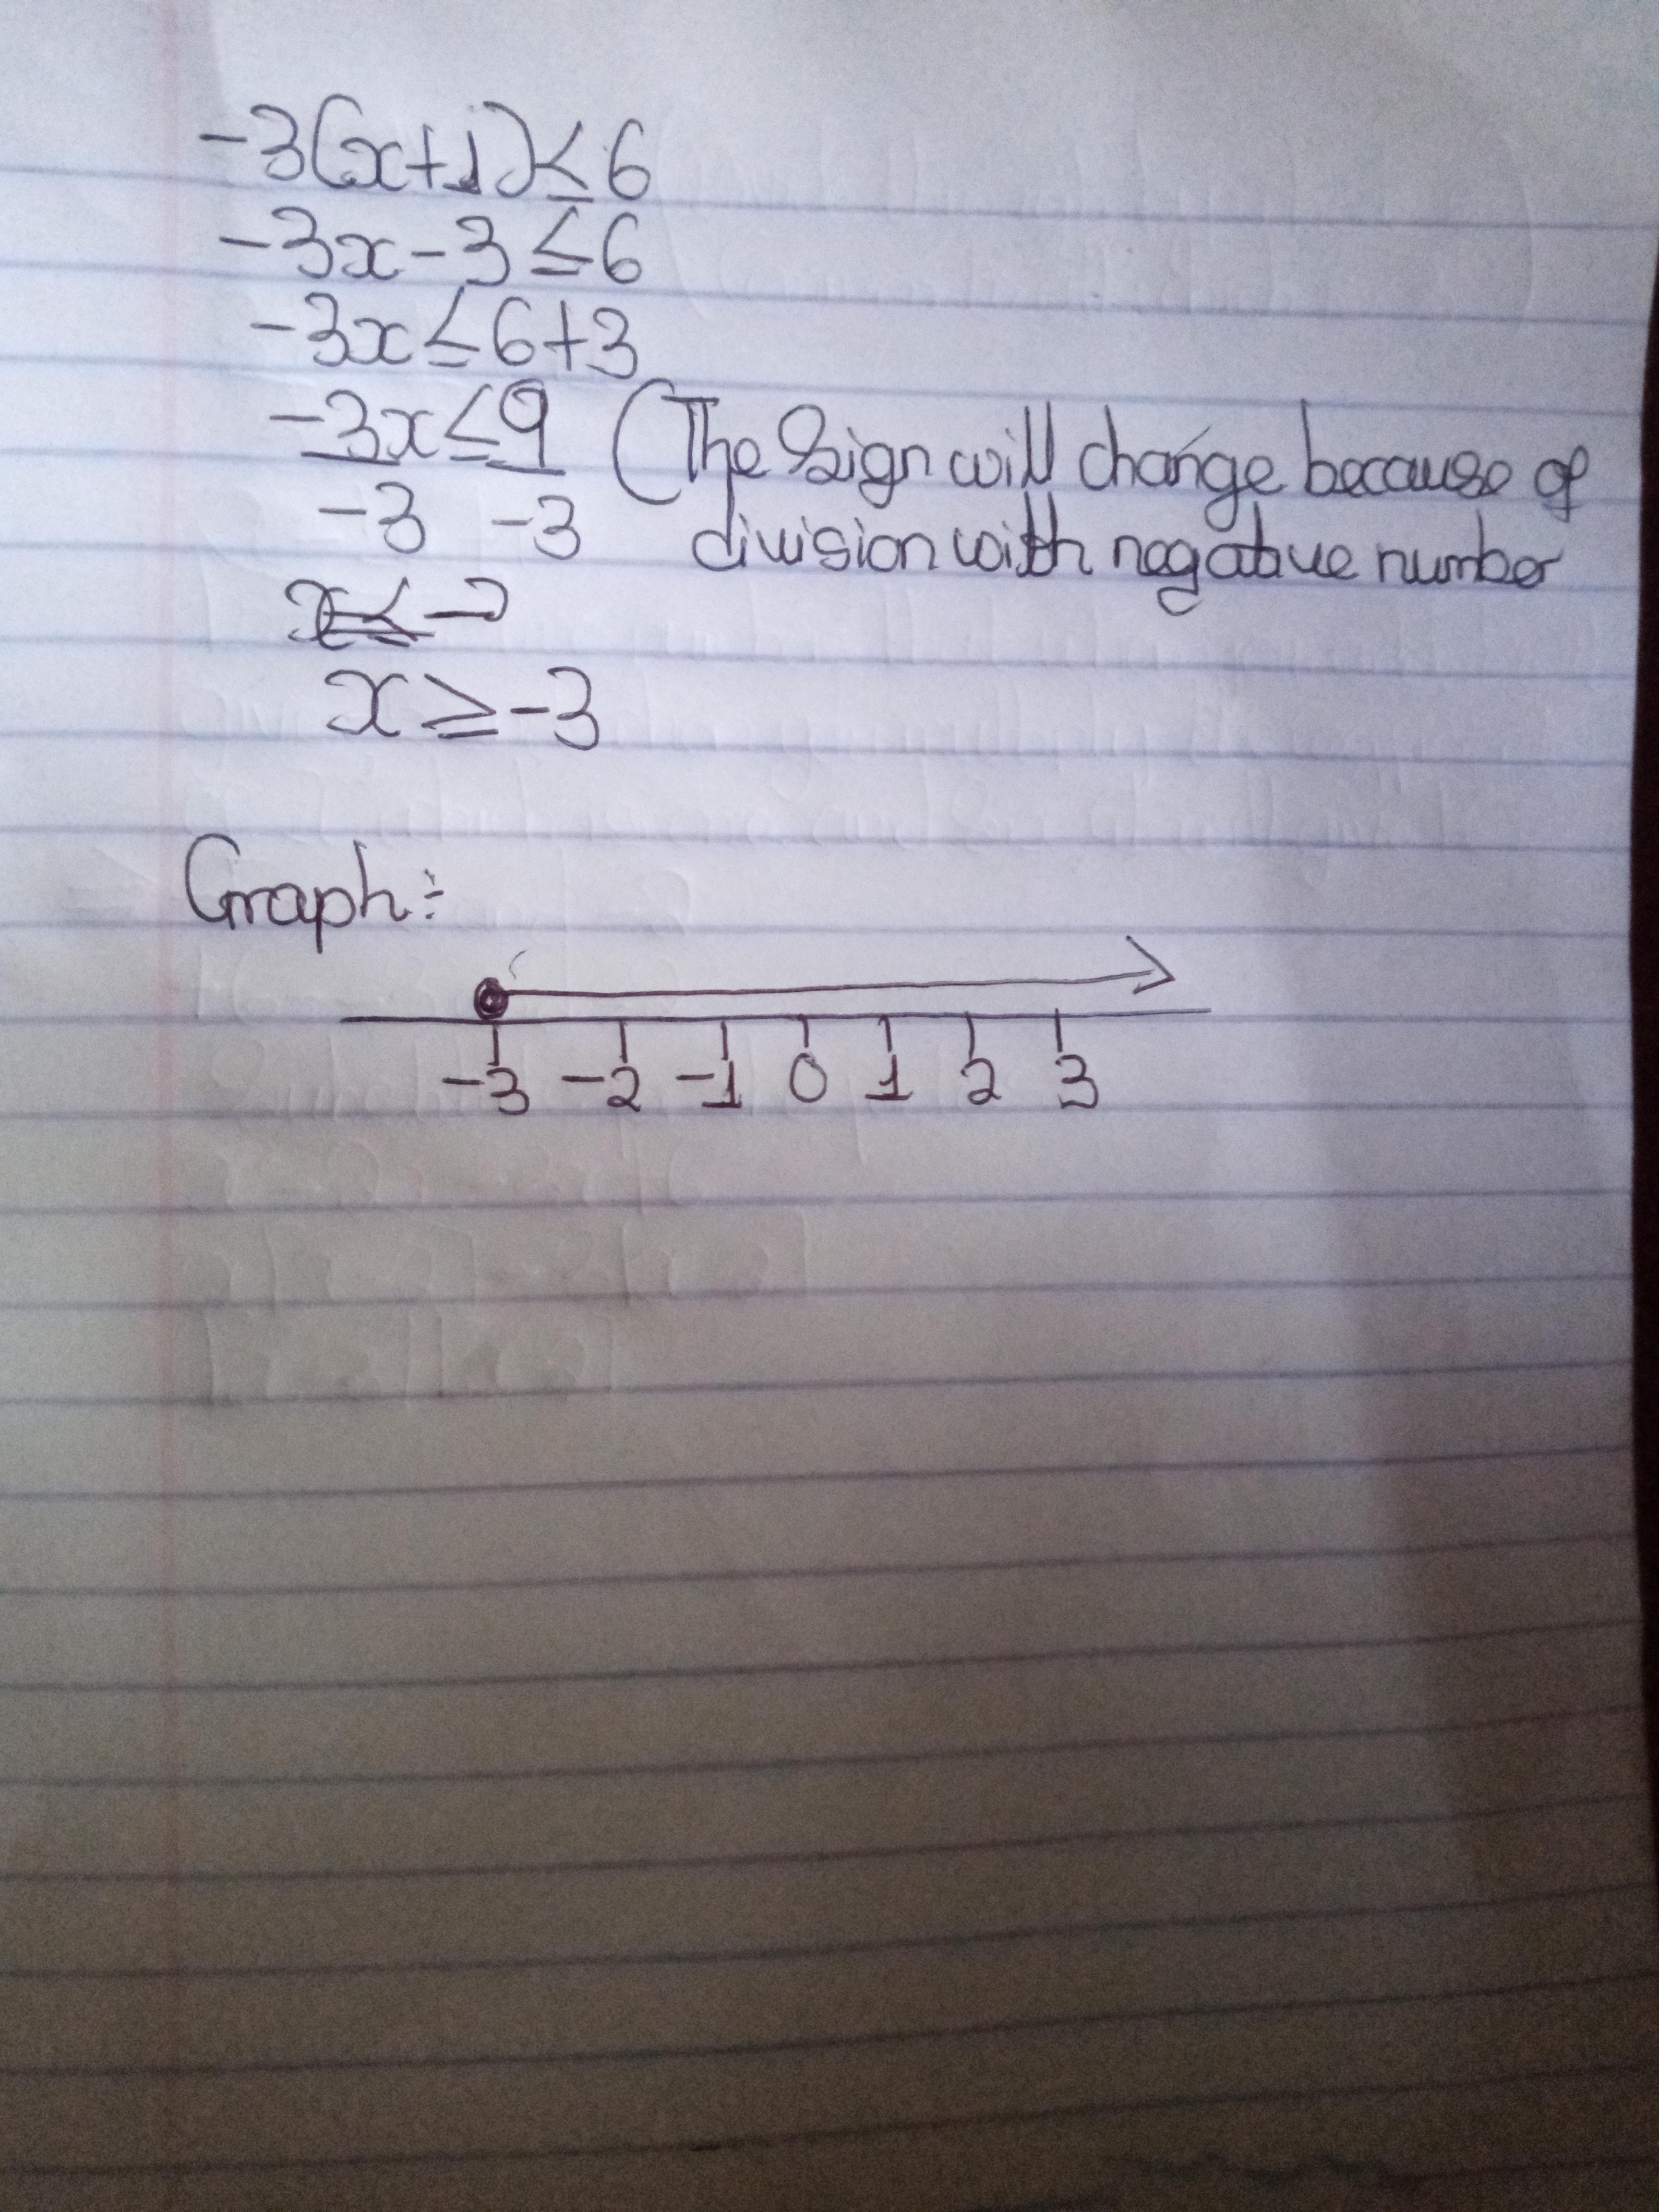 -3(x+1)≤6
-3x-3≤6
-3x≤6+3
-3x≤9 (The Sign will change because of
-3 -3 division with negative number
x≤-
x≥-3
Graph:-
-3 -2 -1 0 1 2 3